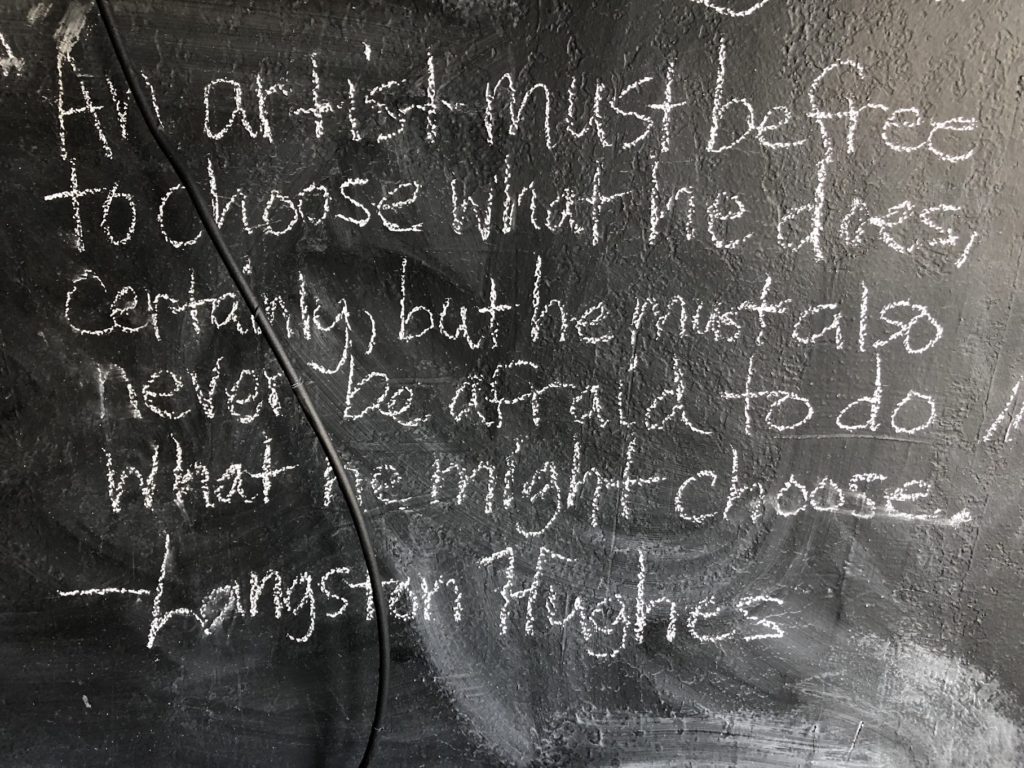 An artist must be free
to choose what he does,
certainly, but he must also
never be afraid to do
what he might choose.
—Langston Hughes